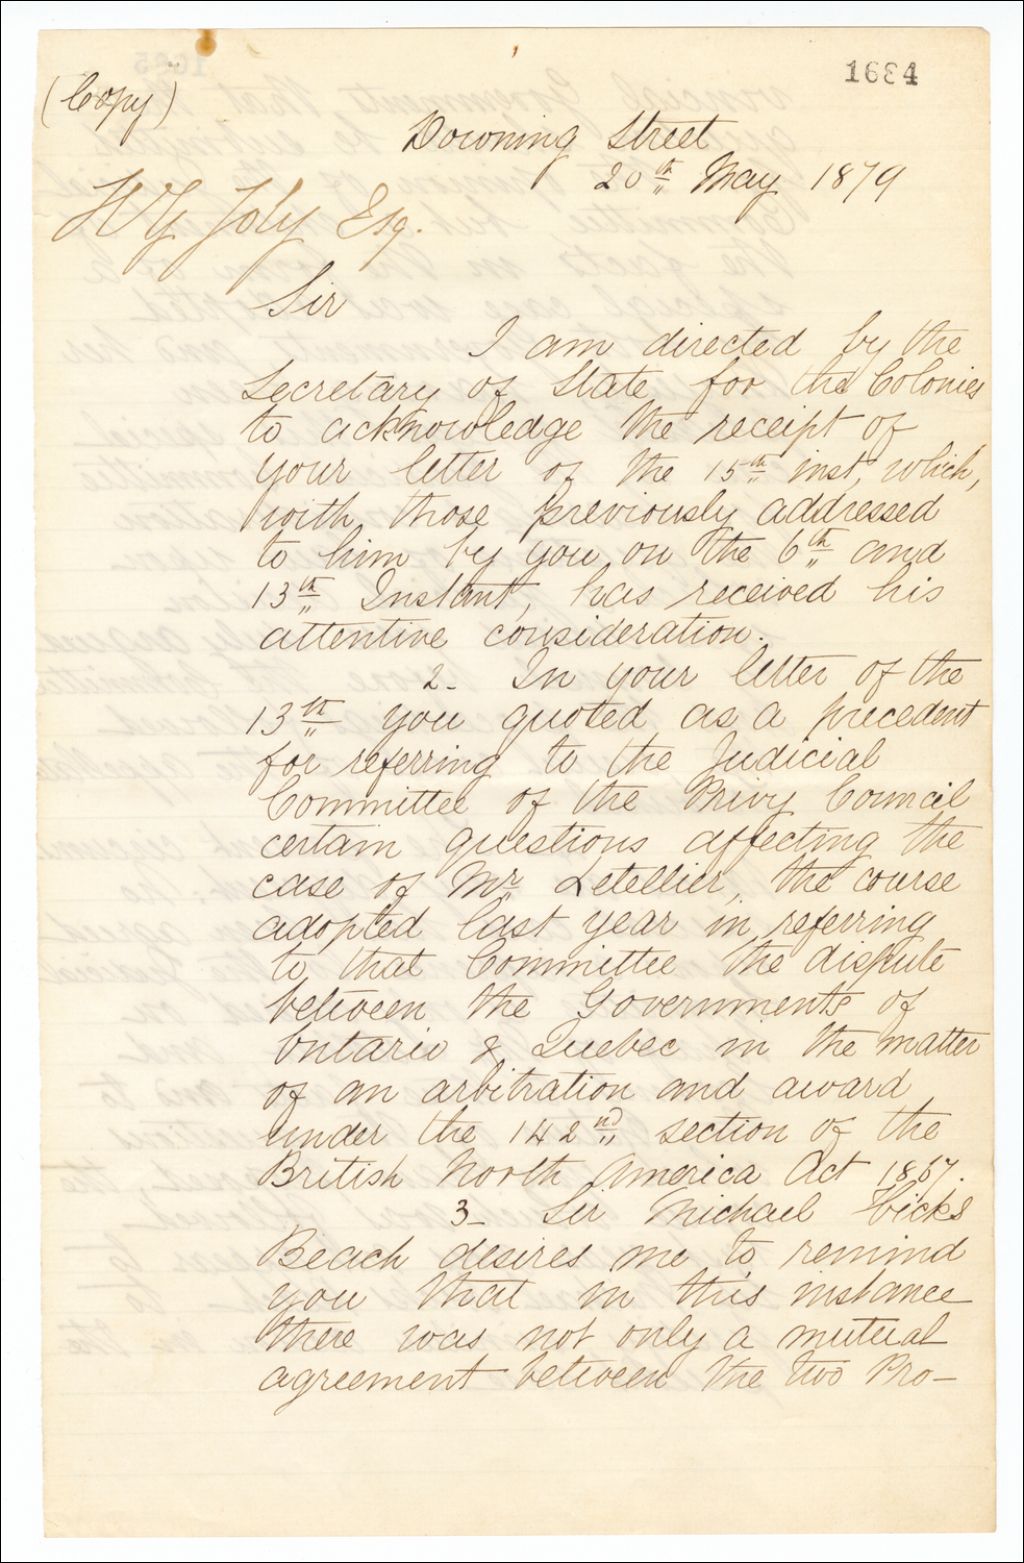 1684
(Copy)
Downing Street
20th May 1879
H G Joly Esq.
Sir
I am directed by the
Secretary of State for the Colonies
to acknowledge the receipt of
your letter of the 15th inst, which,
with those previously addressed
to him by you on the 6th and
13th Instant, has received his
attentive consideration.
2_ In your letter of the
13th you quoted as a precedent
for referring to the Judicial
Committee of the Privy Council
certain questions affecting the
case of Mr Letellier, the course
adopted last year in referring
to that Committee the dispute
between the Governments of
Ontario & Quebec in the matter
of an arbitration and award
under the 142nd section of the
British North America Act 1867.
3_ Sir Michael Hicks
Beach desires me to remind
you that in this instance
there was not only a mutual
agreement between the two Pro_